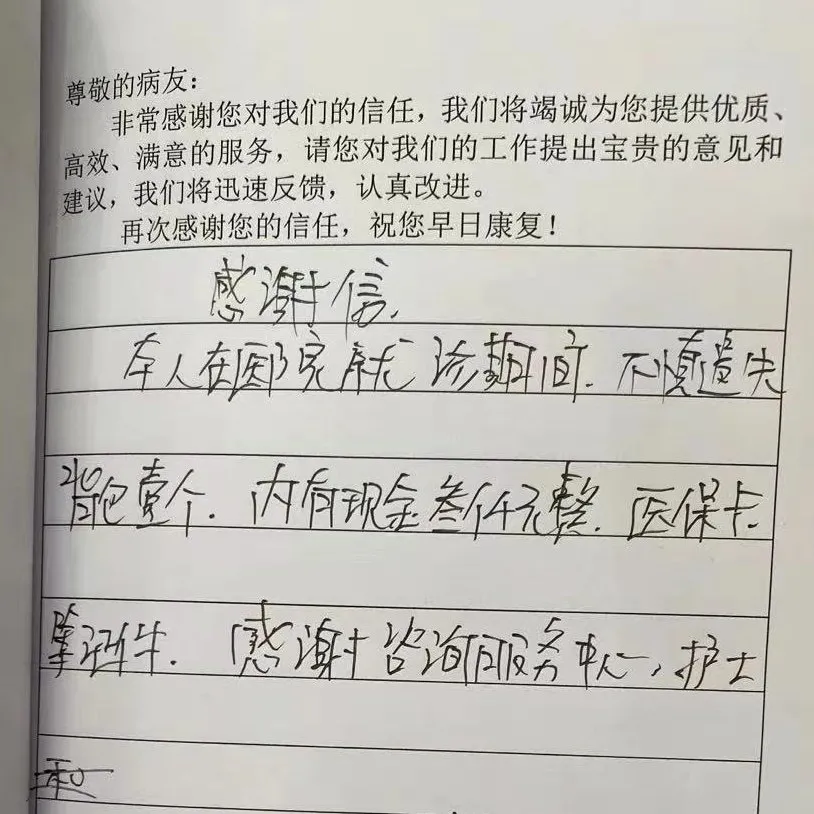 尊敬的病友：
非常感谢您对我们的信任，我们将竭诚为您提供优质、
高效、满意的服务，请您对我们的工作提出宝贵的意见和
建议，我们将迅速反馈，认真改进。
再次感谢您的信任，祝您早日康复！
感谢信.
本人在医院就诊期间.不慎遗失
背包壹个.内有现金叁仟元整.医保卡
等证件.感谢咨询服务中心，护士